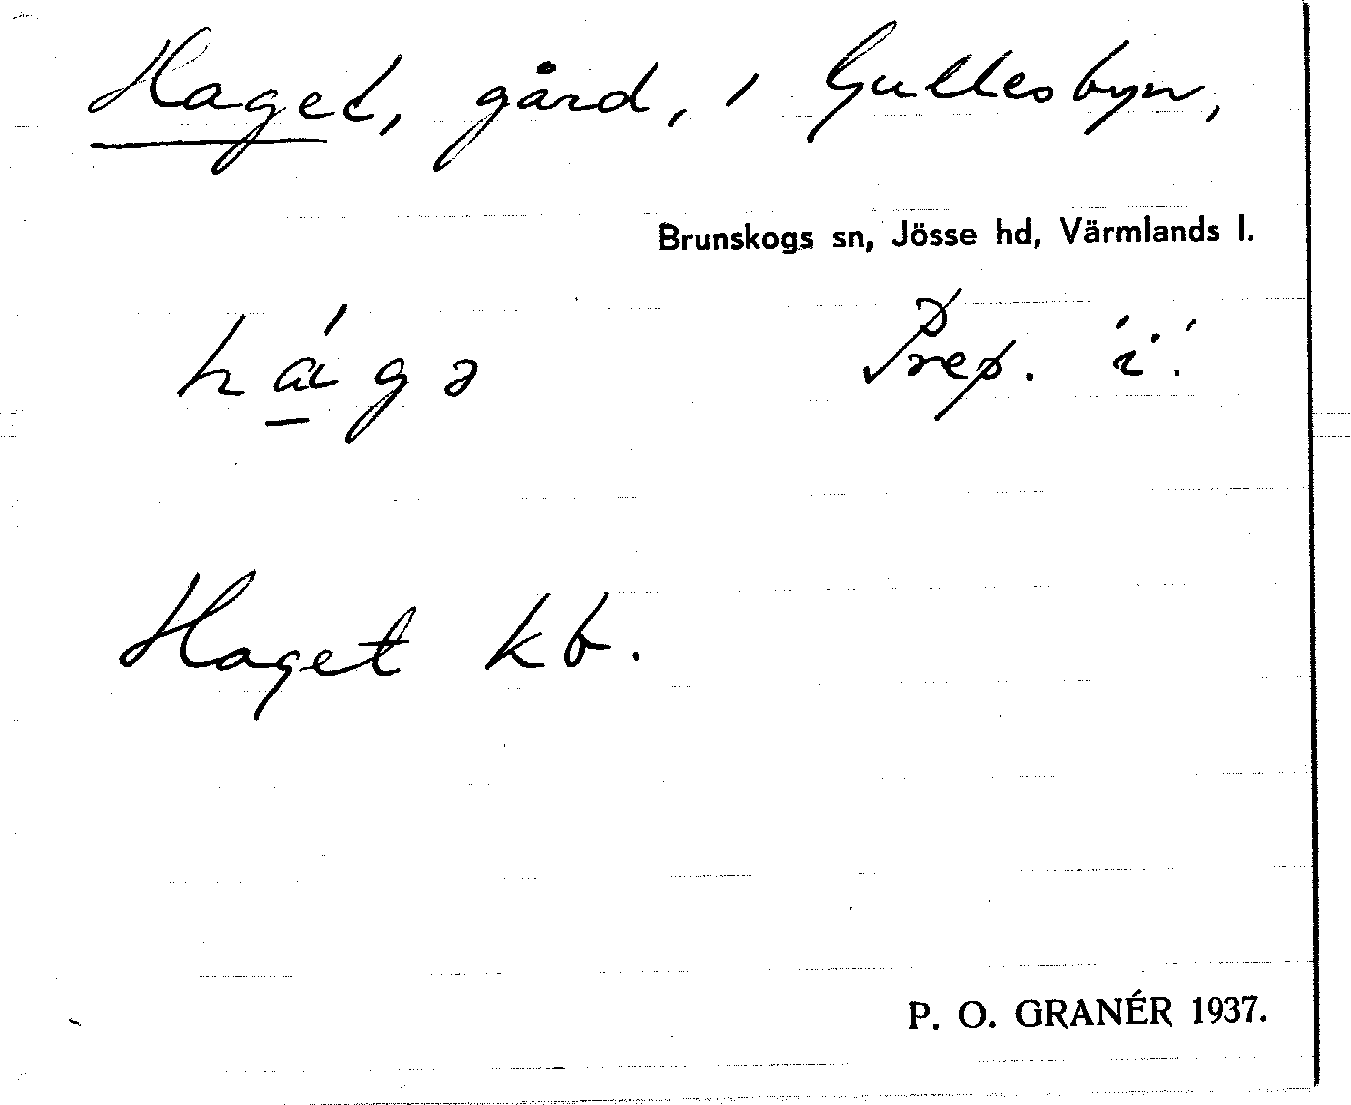 Haget, gård, i Gullesbyn,
Brunskogs sn, Jösse hd, Värmlands l.
há̱gə Prep. 'i'.
Haget kb.
P. O. GRANÉR 1937.